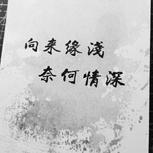 向来缘淺
奈何情深